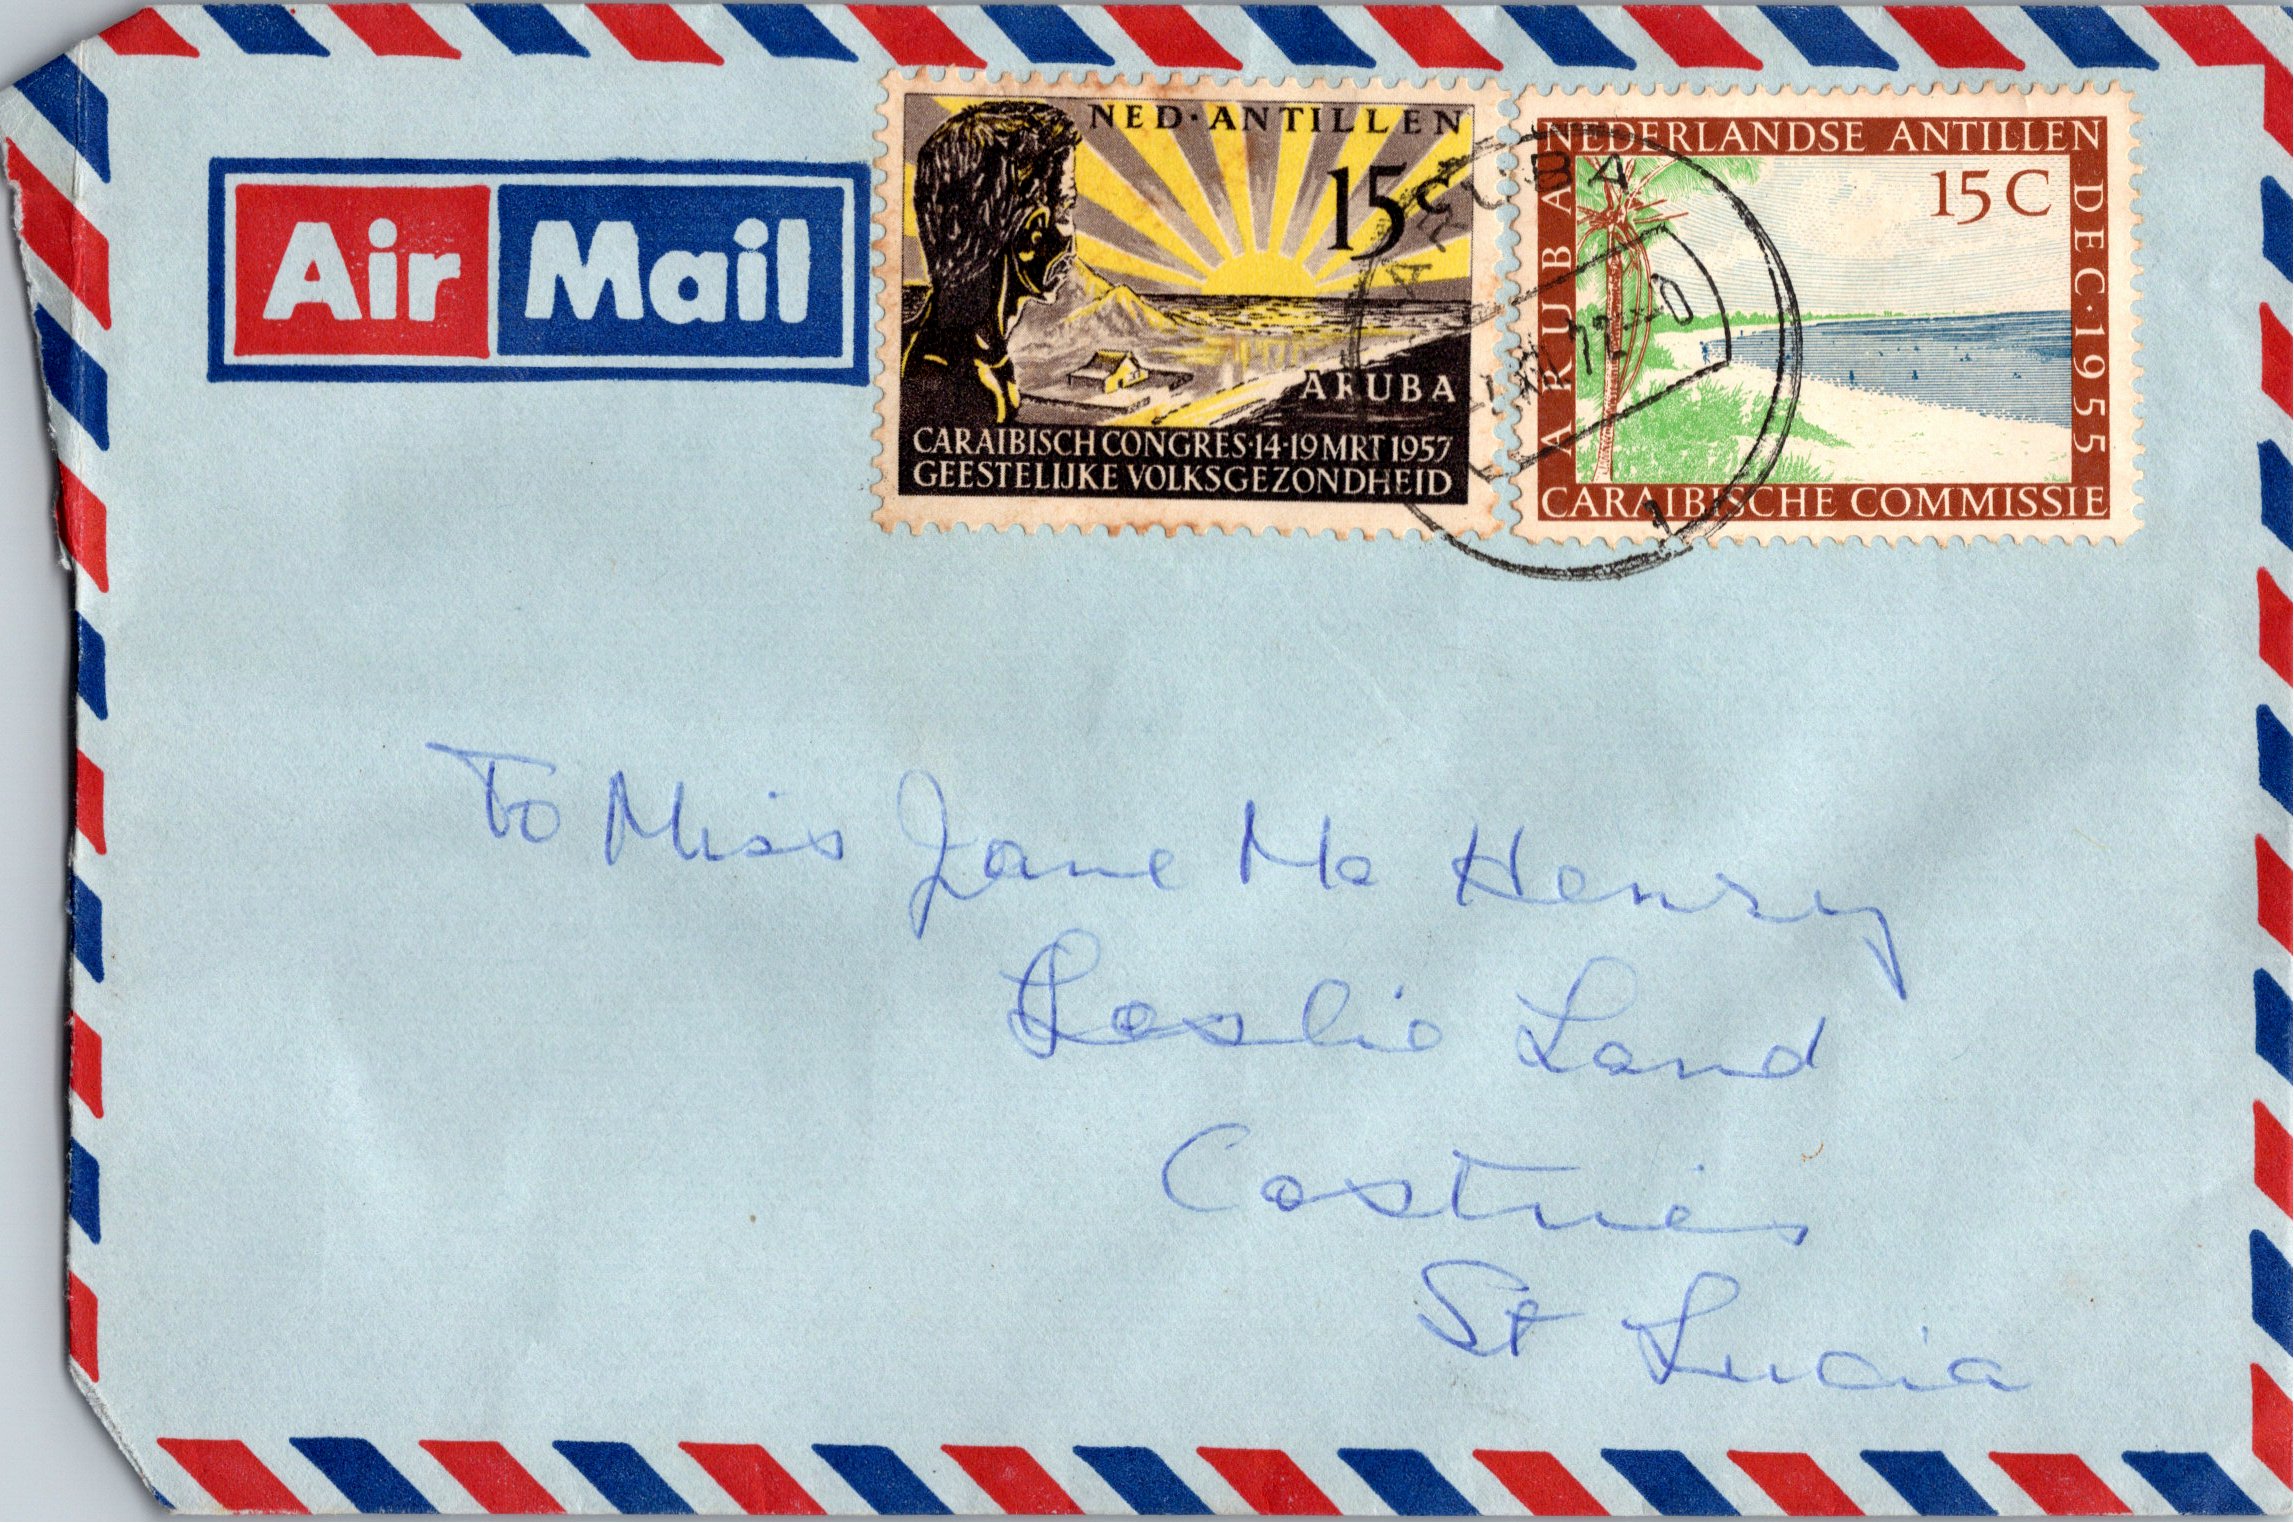 Air Mail
NED·ANTILLEN
15 C
ARUBA
CARAIBISCH CONGRES·14-19 MRT 1957
GEESTELIJKE VOLKSGEZONDHEID
NEDERLANDSE ANTILLEN
15 C
ARUBA
DEC·1955
CARAIBISCHE COMMISSIE
ARUBA
1
To Miss Jane Mc Henry
Leslie Land
Castries
St Lucia